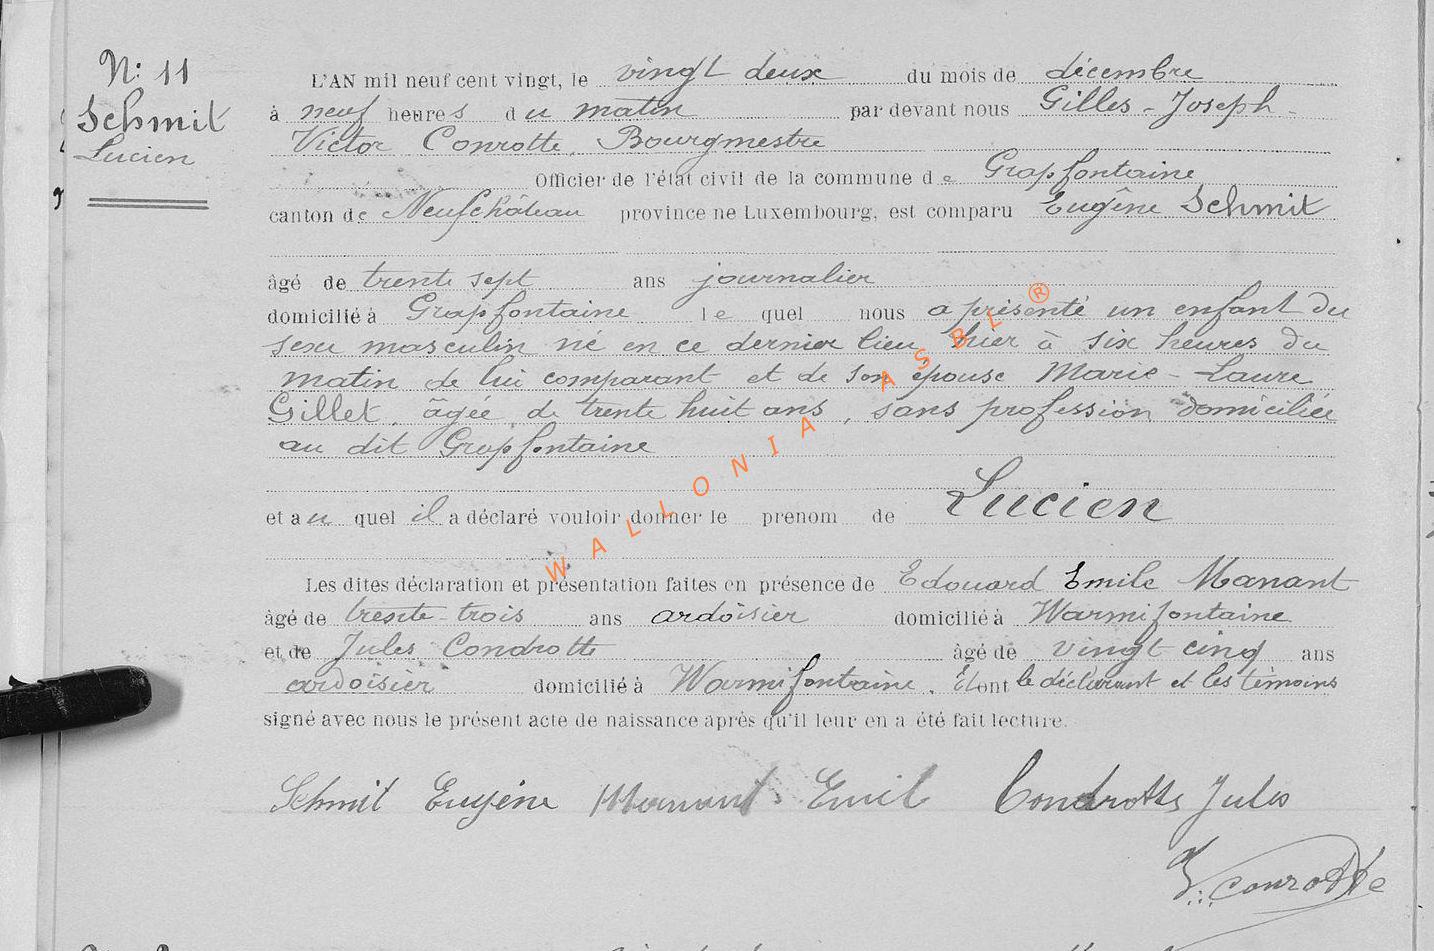 N: 11
Schmit
Lucien
L'AN mil neuf cent vingt, le vingt deux du mois de décembre
à neuf heures du matin par devant nous Gilles-Joseph-
Victor Conrotte, Bourgmestre
Officier de l'état civil de la commune de Grapfontaine
canton de Neufchâteau province ne Luxembourg, est comparu Eugène Schmit
âgé de trente sept ans journalier
domicilié à Grapfontaine lequel nous a présenté un enfant du
sexe masculin né en ce dernier lieu, hier à six heures du
matin de lui comparant et de son épouse Marie-Laure
Gillet, âgée de trente huit ans, sans profession domiciliée
au dit Grapfontaine
et au quel il a déclaré vouloir donner le prenom de Lucien
Les dites déclaration et présentation faites en présence de Edouard Emile Manant
âgé de trente-trois ans ardoisier domicilié à Warmifontaine
et de Jules Condrotte âgé de vingt cinq ans
ardoisier domicilié à Warmifontaine. Et ont le déclarant et les témoins
signé avec nous le présent acte de naissance après qu'il leur en a été fait lecture.
Schmit Eugène Manant Emil Condrotte Jules
V. Conrotte
WALLONIA ASBL ®